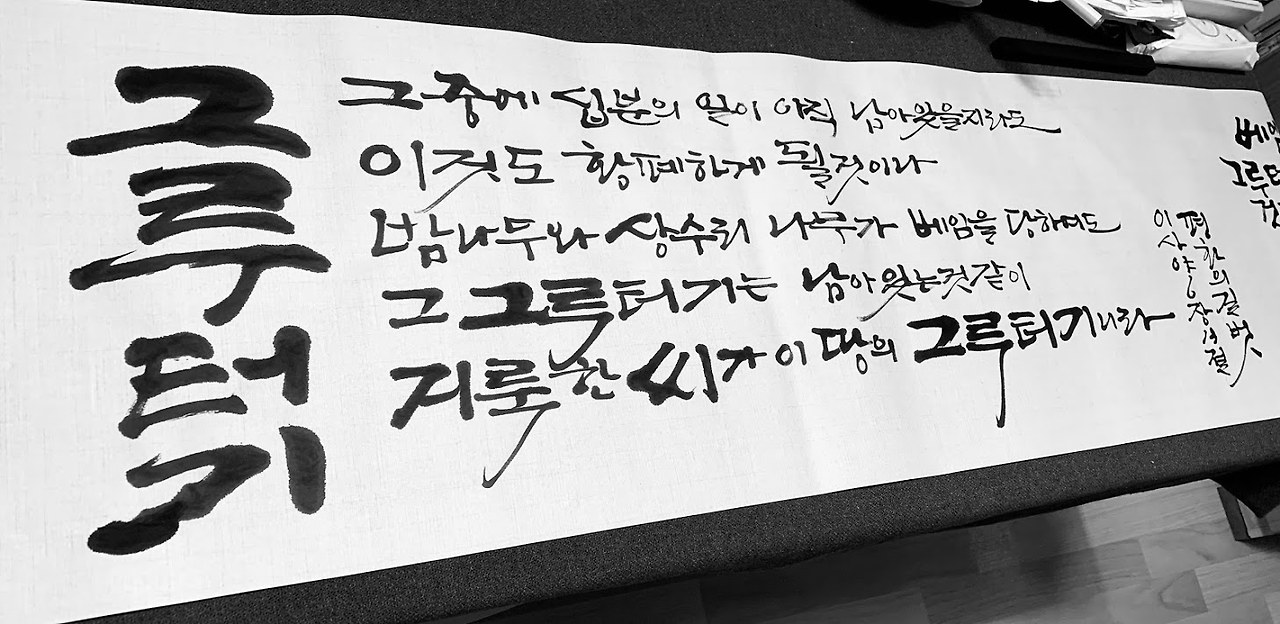 그루터기
그 중에 십분의 일이 아직 남아있을지라도
이것도 황폐하게 될것이라
밤나무와 상수리 나무가 베임을 당하여도
그 그루터기는 남아 있는것 같이
거룩한 씨가 이 땅의 그루터기니라
이사야 6장 13절
평화의 길벗
베임
그루터